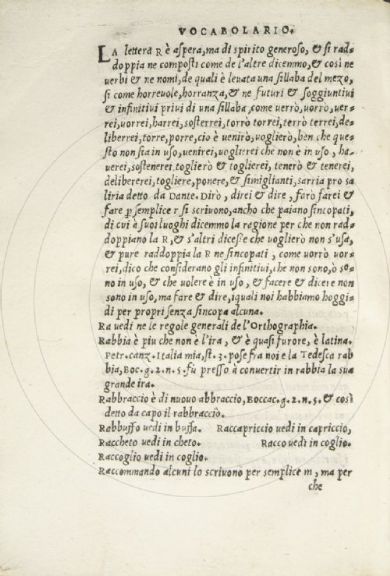 VOCABOLARIO.
LA lettera R è aspera, ma di spirito generoso, & si rad-
doppia ne composti come de l'altre dicemmo, & così ne
uerbi & ne nomi, de quali è leuata una sillaba del mezo,
si come horreuole, horranza, & ne futuri & soggiuntiui
& infinitiui priui di una sillaba, come uerrò, uorrò, uer-
rei, uorrei, harrei, sosterrei, torrò torrei, terrò terrei, de-
liberrei, torre, porre, cio è uenirò, voglierò, ben che que-
sto non sia in uso, uenirei, voglierei che non è in uso, ha-
uerei, sostenerei toglierò & toglierei, tenerò & tenerei,
delibererei, togliere, ponere, & simiglianti, sarria pro sa
liria detto da Dante. Dirò, direi & dire, farò farei &
fare p semplice r si scriuono, ancho che paiano sincopati,
di cui è suoi luoghi dicemmo la ragione per che non rad-
doppiano la R, & s'altri dicesse che voglierò non s'usa,
& pure raddoppia la R ne sincopati, come uorrò uor-
rei, dico che considerano gli infinitiui, che non sono, ò so-
no in uso, & che uolere è in uso, & facere & dicere non
sono in uso, ma fare & dire, iquali noi habbiamo hoggi-
di per propri senza sincopa alcuna.
Ra uedi ne le regole generali de l'Orthographia.
Rabbia è piu che non è l'ira, & è quasi furore, è latina.
Petr. canz. Italia mia, st. 3. pose fra noi e la Tedesca rab
bia, Boc. g. 2. n. 5. fù presso à conuertir in rabbia la sua
grande ira.
Rabbraccio è di nuouo abbraccio, Boccac. g. 2. n. 5. & così
detto da capo il rabbracciò.
Rabbuffo uedi in buffa. Raccapriccio uedi in capriccio,
Raccheto uedi in cheto. Racco uedi in coglio.
Raccoglio uedi in coglio.
Raccommando alcuni lo scriuono per semplice m, ma per
che